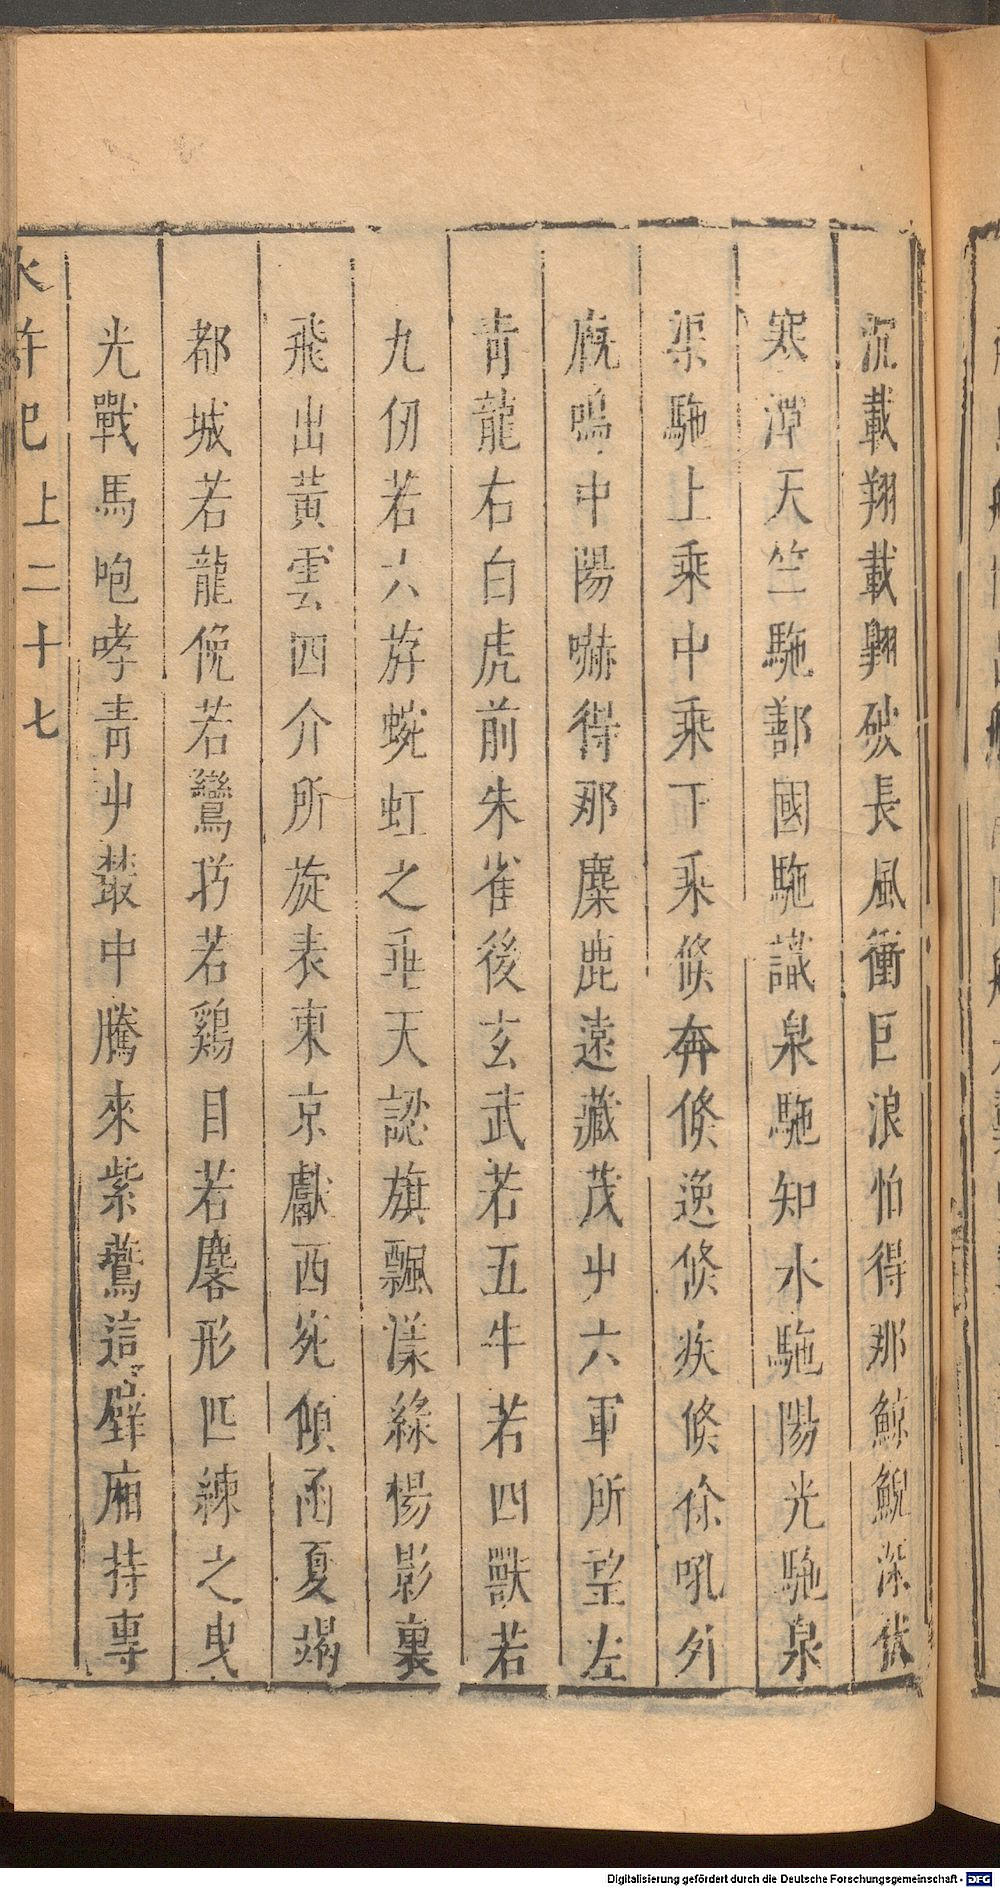 沉載翔載翺破長風衝巨浪怕得那鯨鯢深伏
寒潭天竺駞鄯國駞識泉駞知水駞陽光駞泉
渠駞上乘中乘下乘倏奔倏逸倏疾倏徐吼外
廐鳴中陽嚇得那麋鹿遠藏茂屮六軍所望左
青龍右白虎前朱雀後玄武若五牛若四獸若
九仞若六斿蜺虹之垂天認旗飄漾綠楊影裏
飛出黃雲四介所旋表東京獻西宛傾函夏竭
都城若龍俛若鸞 若鷄目若麏形匹練之曳
光戰馬咆哮青屮叢中騰來紫鷰這 廂持專
水滸 上二十七
Digitalisierung gefördert durch die Deutsche Forschungsgemeinschaft - DFG